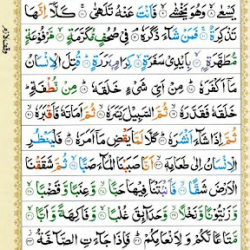 يَسْعٰى ۙ وَهُوَ يَخْشٰى ۙ فَاَنْتَ عَنْهُ تَلَهّٰى ۚ كَلَّاۤ اِنَّهَا
تَذْكِرَةٌ ۚ فَمَنْ شَآءَ ذَكَرَهٗ ۘ فِيْ صُحُفٍ مُّكَرَّمَةٍ ۙ مَّرْفُوْعَةٍ
مُّطَهَّرَةٍ ۙ بِاَيْدِيْ سَفَرَةٍ ۙ كِرَامٍۭ بَرَرَةٍ ۗ قُتِلَ الْاِنْسَانُ
مَاۤ اَكْفَرَهٗ ۗ مِنْ اَيِّ شَيْءٍ خَلَقَهٗ ۗ مِنْ نُّطْفَةٍ ۗ
خَلَقَهٗ فَقَدَّرَهٗ ۙ ثُمَّ السَّبِيْلَ يَسَّرَهٗ ۙ ثُمَّ اَمَاتَهٗ فَاَقْبَرَهٗ ۙ
ثُمَّ اِذَا شَآءَ اَنْشَرَهٗ ۗ كَلَّا لَمَّا يَقْضِ مَاۤ اَمَرَهٗ ۗ فَلْيَنْظُرِ
الْاِنْسَانُ اِلٰى طَعَامِهٖۤ ۙ اَنَّا صَبَبْنَا الْمَآءَ صَبًّا ۙ ثُمَّ شَقَقْنَا
الْاَرْضَ شَقًّا ۙ فَاَنْبَتْنَا فِيْهَا حَبًّا ۙ وَّعِنَبًا وَّقَضْبًا ۙ
وَّزَيْتُوْنًا وَّنَخْلًا ۙ وَّحَدَآئِقَ غُلْبًا ۙ وَّفَاكِهَةً وَّاَبًّا ۙ
مَّتَاعًا لَّكُمْ وَلِاَنْعَامِكُمْ ۗ فَاِذَا جَآءَتِ الصَّآخَّةُ ۚ
وقف لازم